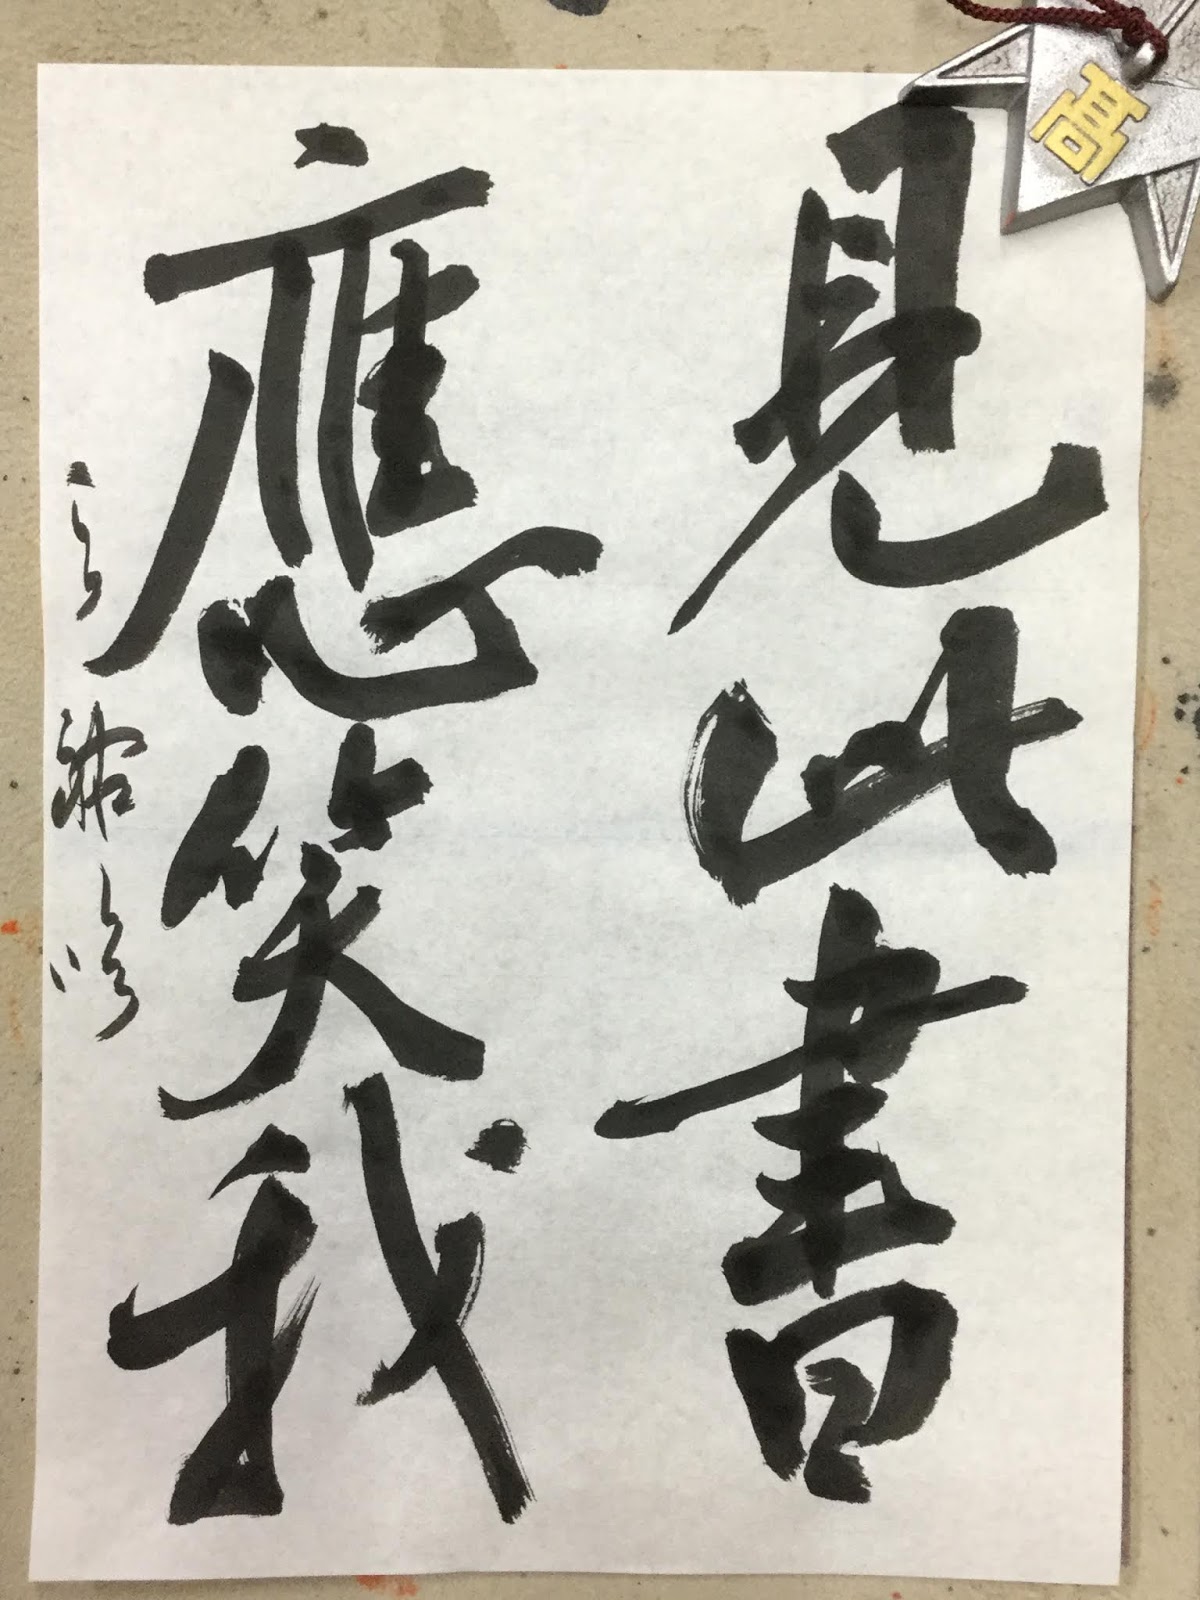 見此書
應笑我
高